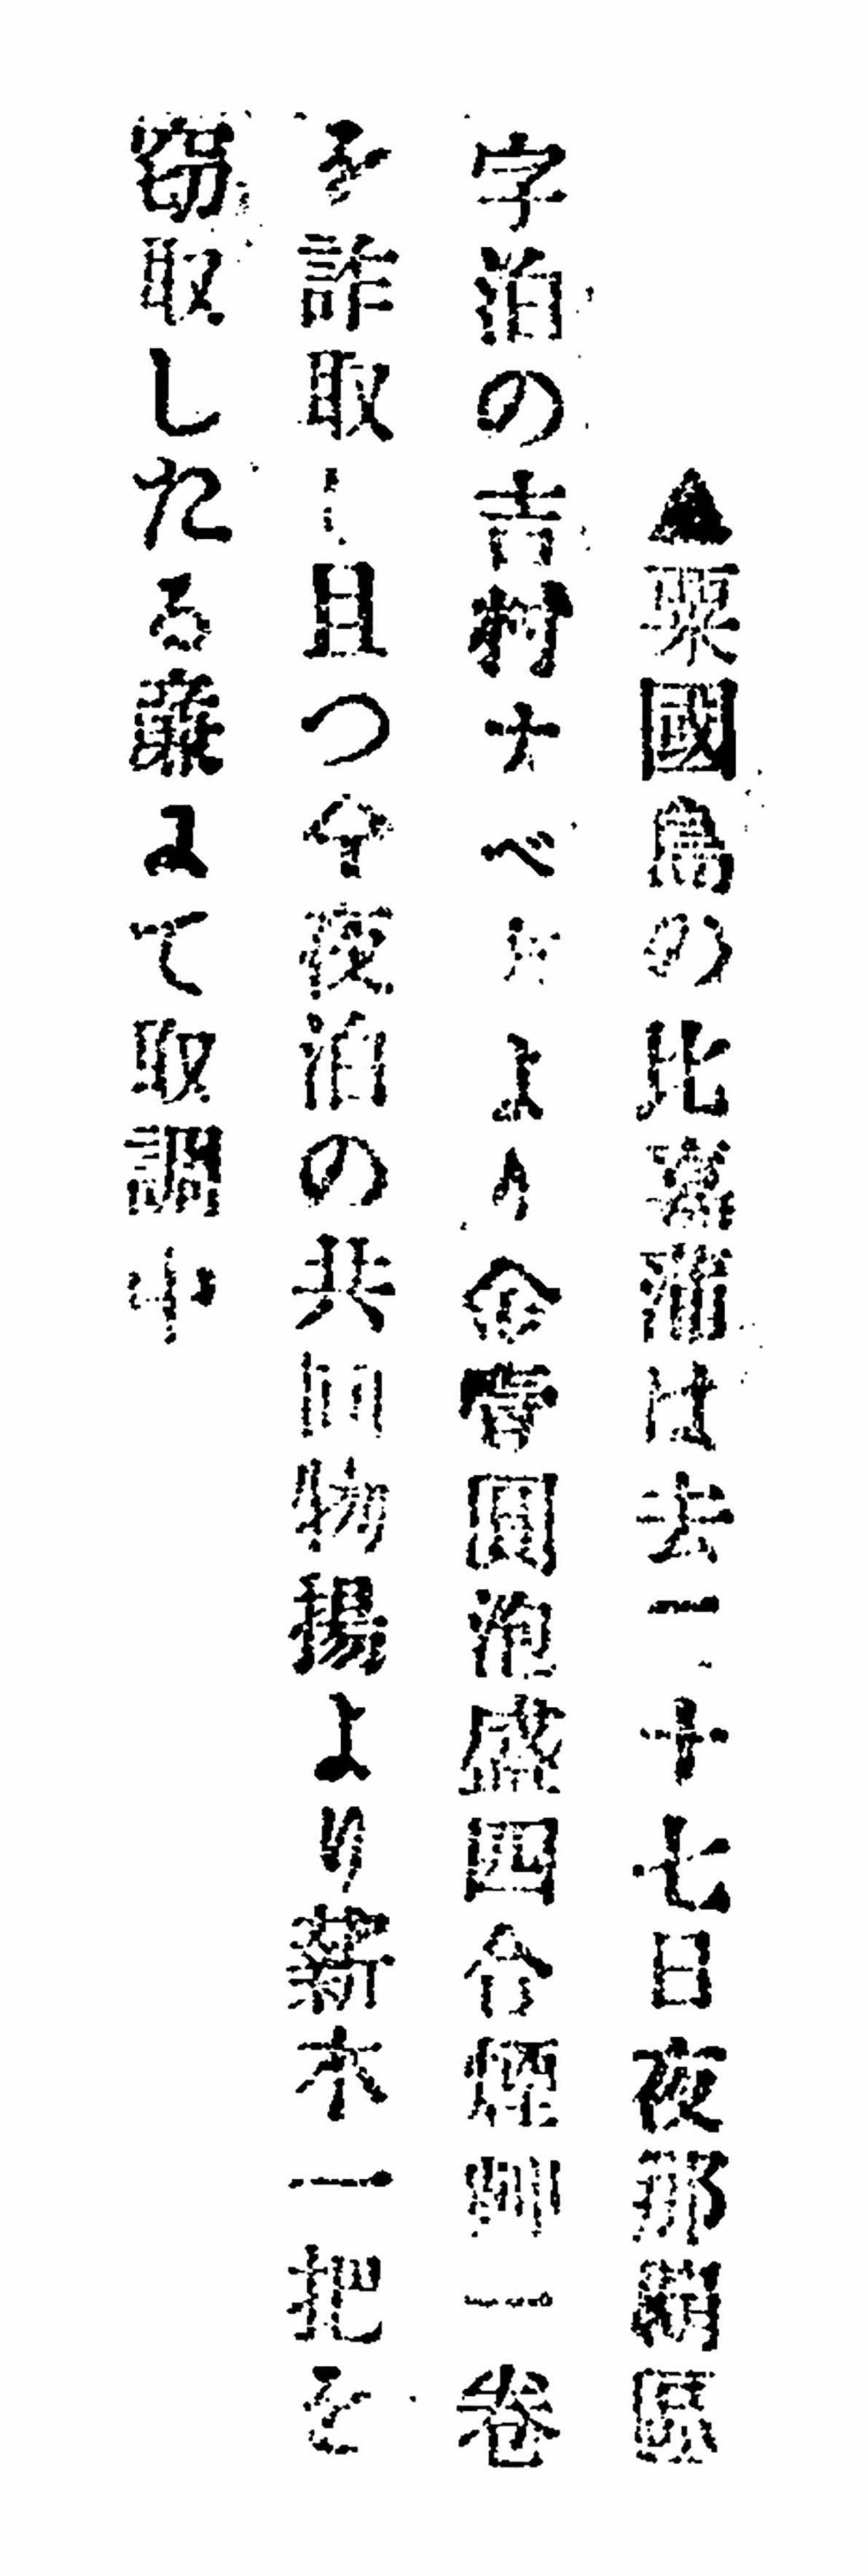 ▲粟國島の比嘉蒲は去二十七日夜那覇區
字泊の吉村ナベ𪜈より金壹圓泡盛四合煙艸一卷
を詐取し且つ今夜泊の共同物揚より薪木一把を
窃取したる廉にて取調中